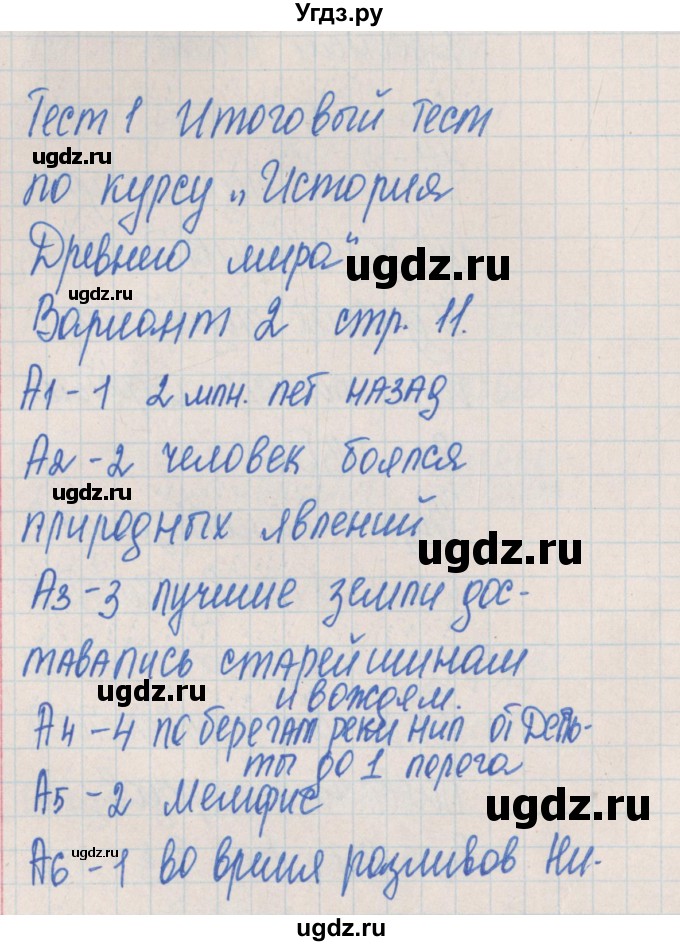 Угдз.ру
Тест 1 Итоговый тест
ugdz.ru
по курсу „История
Древнего мира"
ugdz.ru
ugdz.ru
Вариант 2 стр. 11.
А1 - 1 2 млн. лет назад
А2 - 2 человек боялся
ugdz.ru
природных явлений
ugdz.ru
А3 - 3 лучшие земли дос-
тавались старейшинам
ugdz.ru
и вождям.
А4 - 4 по берегам реки Нил от Дель-
ты до 1 порога
А5 - 2 Мемфис
ugdz.ru
ugdz.ru
А6 - 1 во время разливов Ни-
ugdz.ru